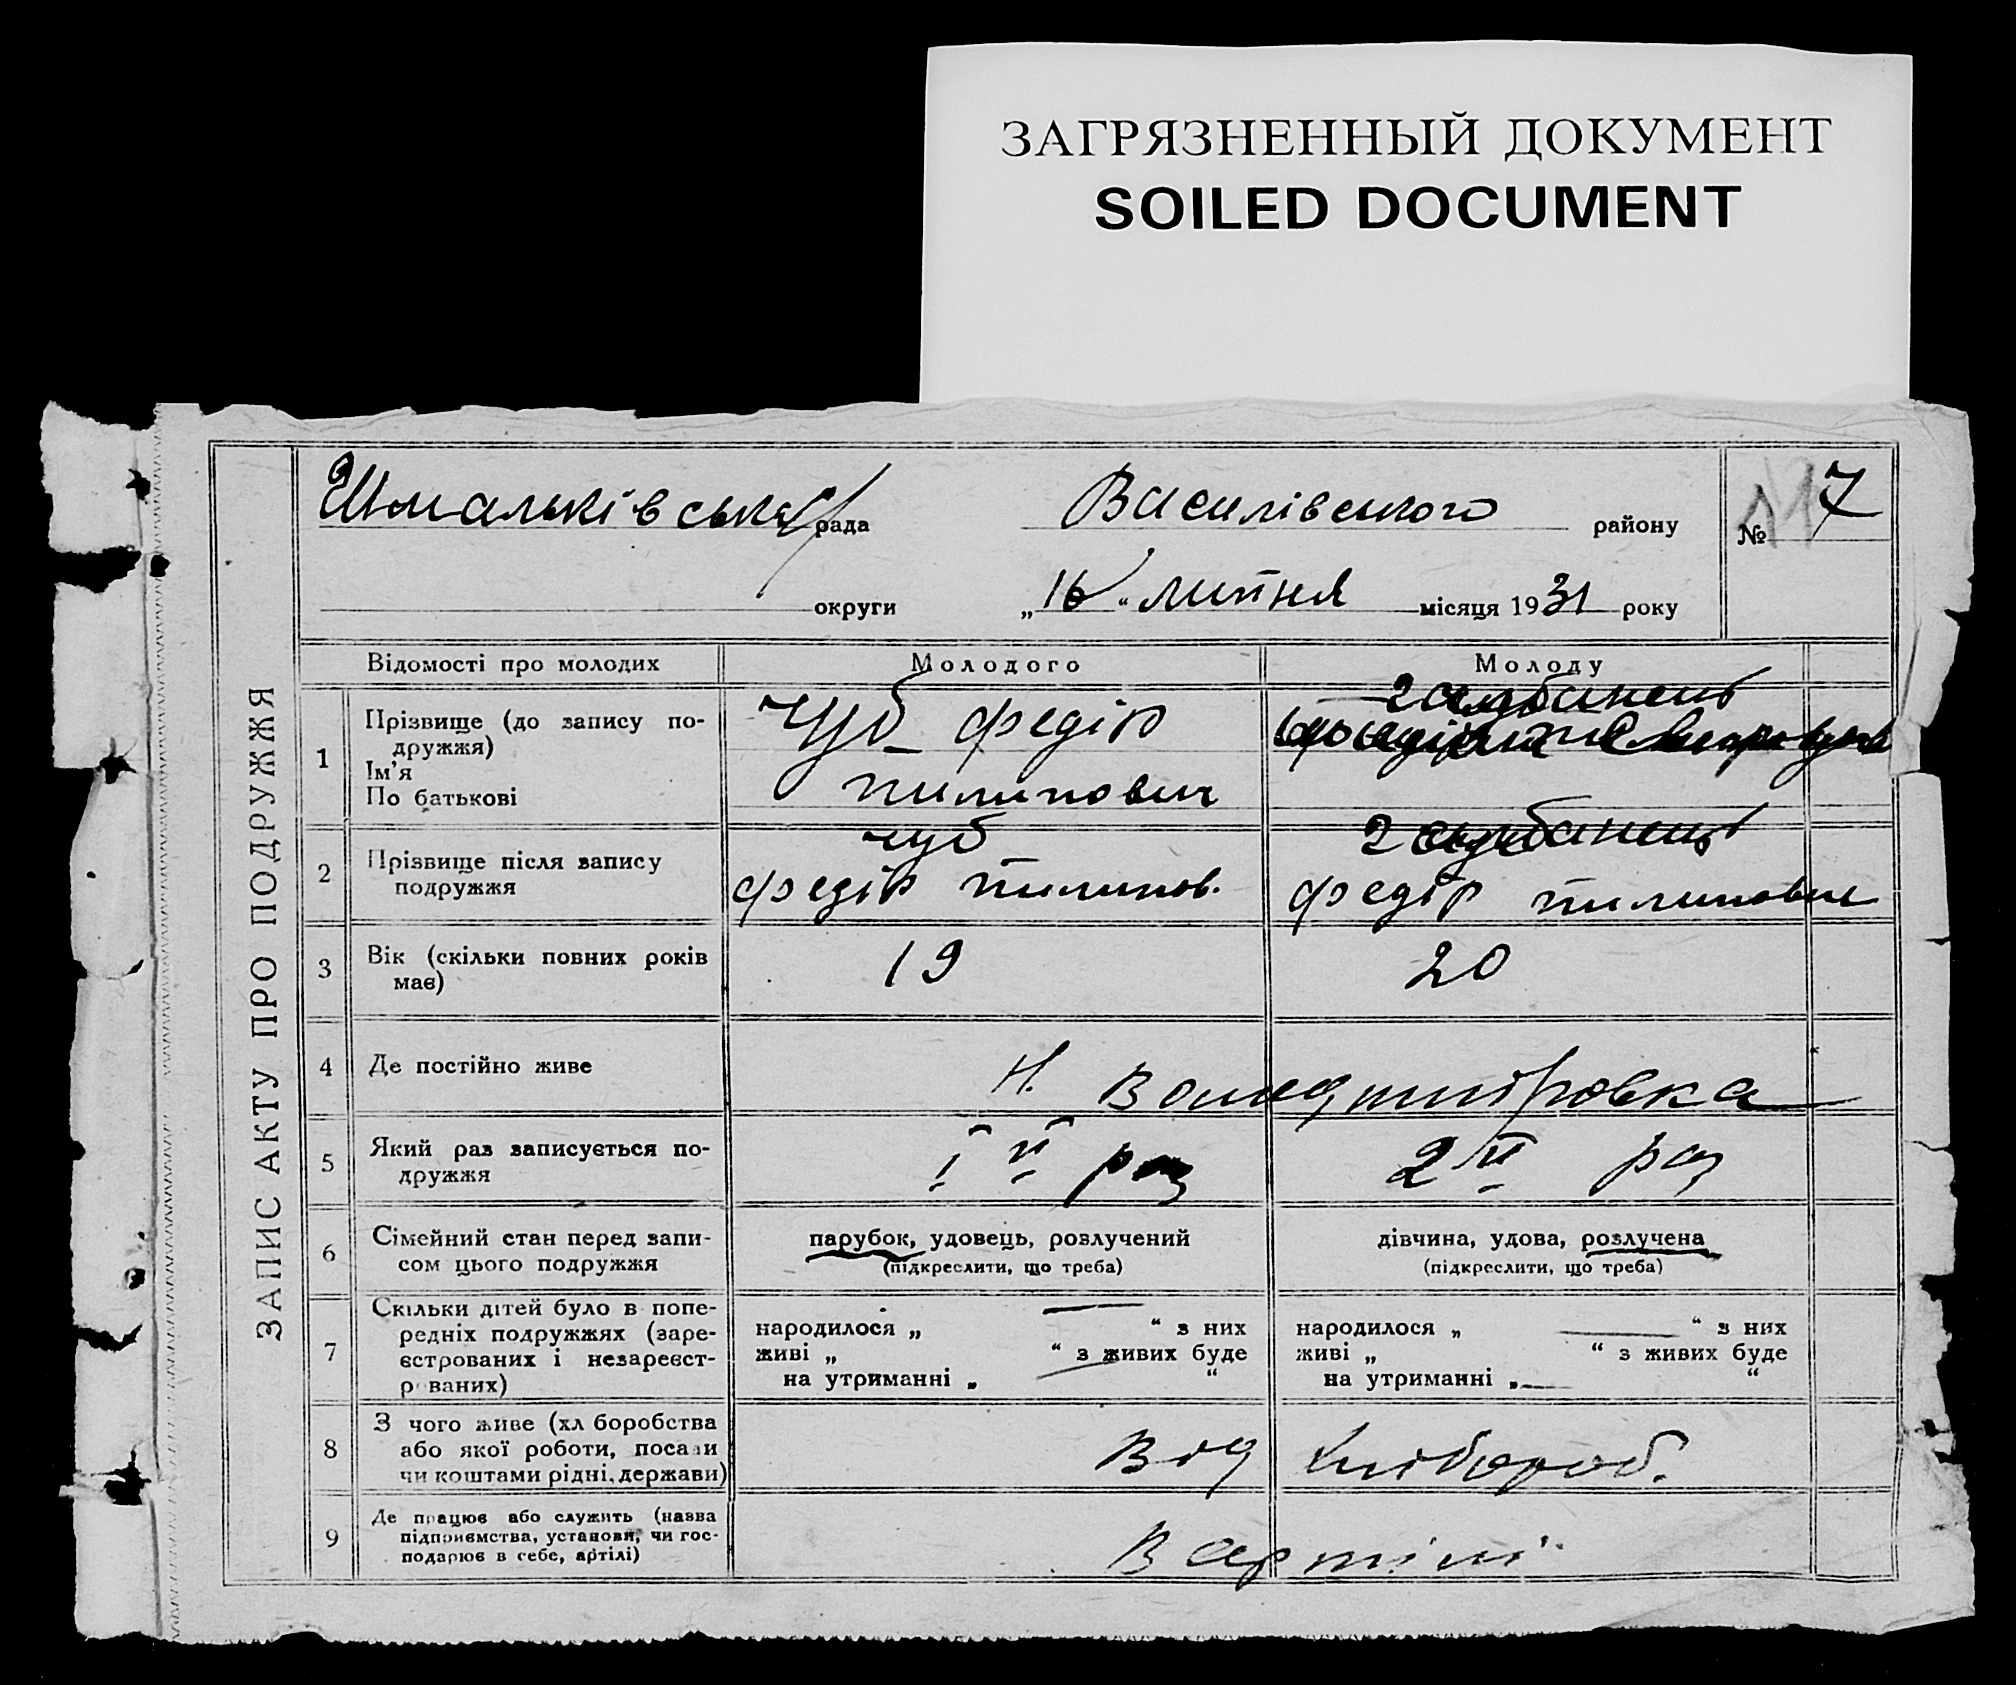 ЗАГРЯЗНЕННЫЙ ДОКУМЕНТ
SOILED DOCUMENT
ЗАПИС АКТУ ПРО ПОДРУЖЖЯ
Шмальківська рада Василівського району № 7
округи „16“ липня місяця 1931 року
Відомості про молодих Молодого Молоду
1 Прізвище (до запису подружжя) Ім'я По батькові
Чуб Федір
Пилипович
2 Прізвище після запису подружжя
Чуб
Федір Пилипов.
Федір Пилипович
3 Вік (скільки повних років має) 19 20
4 Де постійно живе Н.
5 Який раз записується подружжя I й раз 2 й раз
6 Сімейний стан перед записом цього подружжя
парубок, удовець, розлучений
(підкреслити, що треба)
дівчина, удова, розлучена
(підкреслити, що треба)
7 Скільки дітей було в попередніх подружжях (зареєстрованих і незареєстрованих)
народилося „ “ з них
живі „ “ з живих буде
на утриманні „ “
народилося „ “ з них
живі „ “ з живих буде
на утриманні „ “
8 З чого живе (хліборобства або якої роботи, посади чи коштами рідні, держави) Від хлібороб.
9 Де працює або служить (назва підприємства, установи, чи господарює в себе, артілі) В артілі